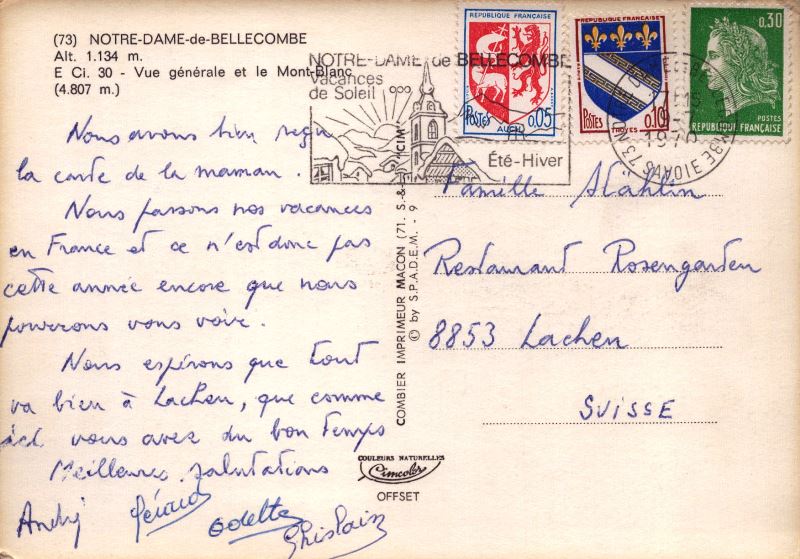 (73) NOTRE-DAME-de-BELLECOMBE
Alt. 1.134 m.
E Ci. 30 - Vue générale et le Mont-Blanc
(4.807 m.)
Nous avons bien reçu
la carte de la maman.
Nous passons nos vacances
en France et ce n'est donc pas
cette année encore que nous
pourrons vous voir.
Nous espérons que tout
va bien à Lachen, que comme
ici vous avez du bon temps
Meilleures salutations
André Gérard Odette Ghislain
COMBIER IMPRIMEUR MACON (71. S.-&-L.) "CIM"
© by S.P.A.D.E.M. - 9
COULEURS NATURELLES
Cimcolor
OFFSET
NOTRE-DAME de BELLECOMBE
Vacances
de Soleil
Eté-Hiver
RÉPUBLIQUE FRANÇAISE
POSTES 0,05
AUCH
RÉPUBLIQUE FRANÇAISE
POSTES 0,10
TROYES
0,30
POSTES
RÉPUBLIQUE FRANÇAISE
1970
73 SAVOIE
Famille Stählin
Restaurant Rosengarten
8853 Lachen
SUISSE